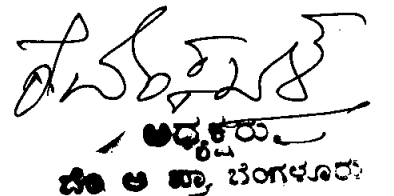 ಅಧ್ಯಕ್ಷರು
ಬೆಂ ಅ ಪ್ರಾ ಬೆಂಗಳೂರು